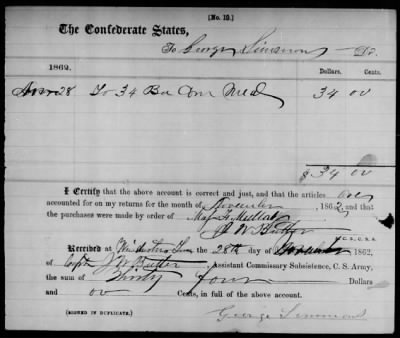 [No. 19.]
The Confederate States,
To George Simmons Dr.
1862. Dollars. Cents.
Nov 28 To 34 Bu Corn Meal 34 00
$34 00
I Certify that the above account is correct and just, and that the articles
accounted for on my returns for the month of November, 1862, and that
the purchases were made by order of Maj
W Butler
A. C. S., C. S. A.
Received at the 28th day of November 1862,
of Capt J W Butler, Assistant Commissary Subsistence, C. S. Army,
the sum of Thirty four Dollars
and 00 Cents, in full of the above account.
[SIGNED IN DUPLICATE.] George Simmons